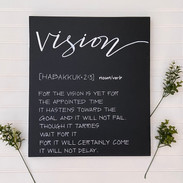 Vision
[HABAKKUK•2:3] noun/verb
FOR THE VISION IS YET FOR
THE APPOINTED TIME
IT HASTENS TOWARD THE
GOAL AND IT WILL NOT FAIL.
THOUGH IT TARRIES
WAIT FOR IT
FOR IT WILL CERTAINLY COME
IT WILL NOT DELAY.